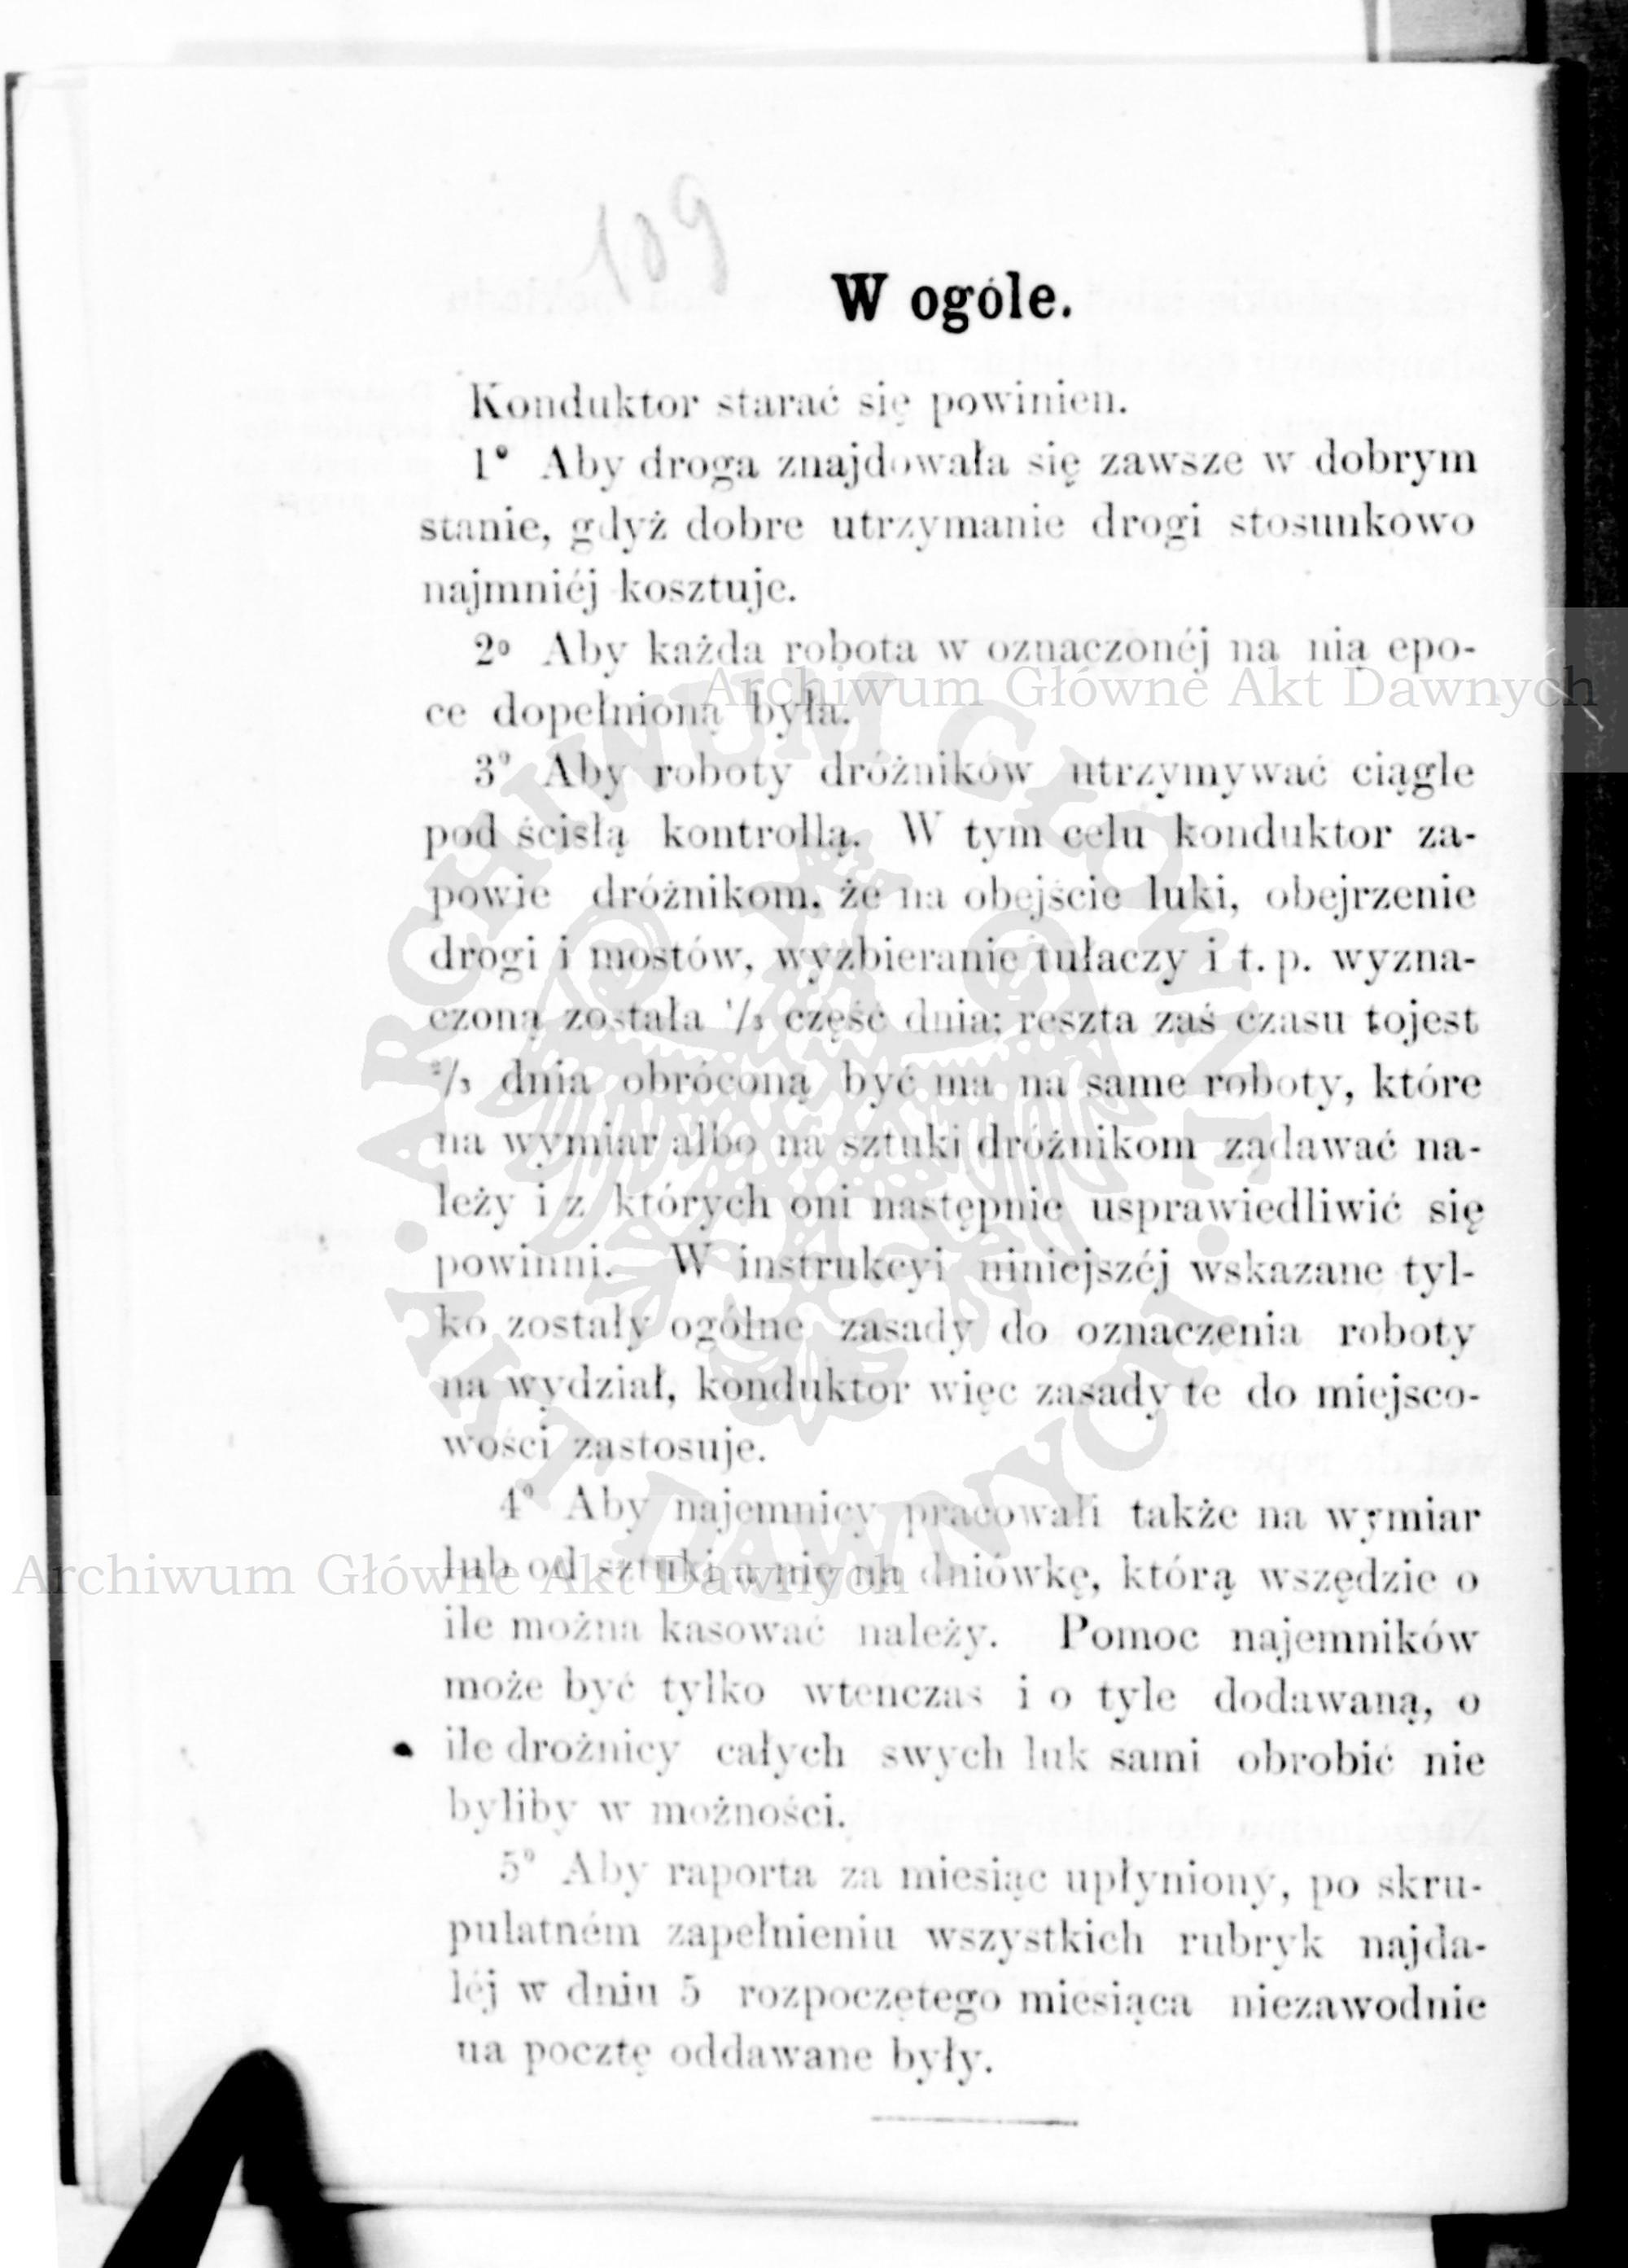 109
W ogóle.
Konduktor starać się powinien.
1° Aby droga znajdowała się zawsze w dobrym
stanie, gdyż dobre utrzymanie drogi stosunkowo
najmniéj kosztuje.
2° Aby każda robota w oznaczonéj na nią epo-
ce dopełnioną była.
Archiwum Główne Akt Dawnych
3° Aby roboty dróżników utrzymywać ciągle
pod ścisłą kontrollą. W tym celu konduktor za-
powie dróżnikom, że na obejście luki, obejrzenie
drogi i mostów, wyzbieranie tułaczy i t. p. wyzna-
czoną została 1/3 część dnia; reszta zaś czasu tojest
2/3 dnia obróconą być ma na same roboty, które
na wymiar albo na sztuki dróżnikom zadawać na-
leży i z których oni następnie usprawiedliwić się
powinni. W instrukcyi niniejszéj wskazane tyl-
ko zostały ogólne zasady do oznaczenia roboty
na wydział, konduktor więc zasady te do miejsco-
wości zastosuje.
4° Aby najemnicy pracowali także na wymiar
lub od sztuki a nie na dniówkę, którą wszędzie o
Archiwum Główne Akt Dawnych
ile można kasować należy. Pomoc najemników
może być tylko wtenczas i o tyle dodawaną, o
ile drożnicy całych swych luk sami obrobić nie
byliby w możności.
5° Aby raporta za miesiąc upłyniony, po skru-
pulatném zapełnieniu wszystkich rubryk najda-
léj w dniu 5 rozpoczętego miesiąca niezawodnie
na pocztę oddawane były.
ARCHIWUM GŁÓWNE AKT DAWNYCH